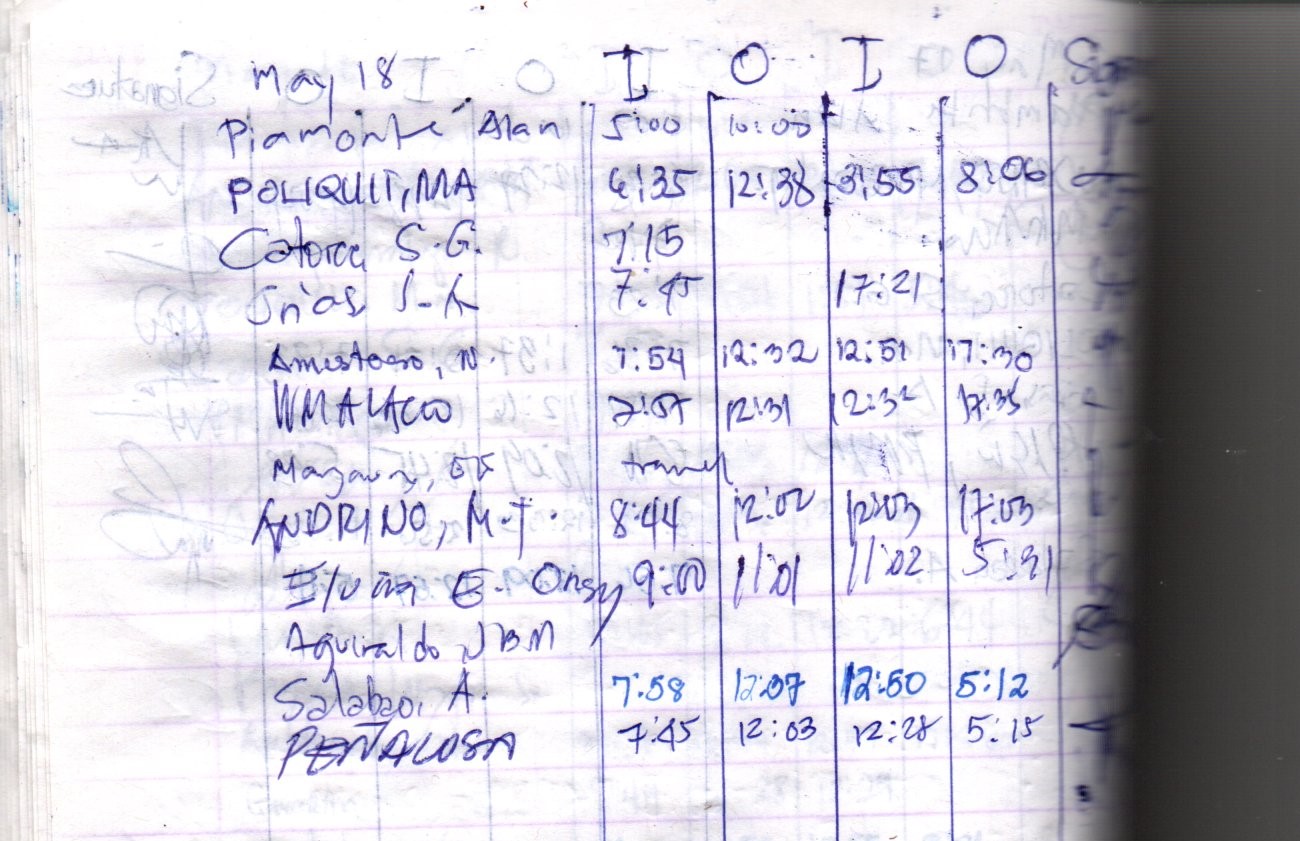 May 18 I O I O
Piamonte Alan 5:00 10:00
POLIQUIT, MA 6:35 12:38 3:55 8:06
Catorce S.G. 7:15
7:45 17:21
N. 7:54 12:32 12:51 17:30
12:31 12:32 17:35
travel
ANDRINO, M.T. 8:44 12:02 12:03 17:03
E. 9:00 11:01 11:02 5:31
Aguinaldo, JBM
Salabao, A. 7:58 12:07 12:50 5:12
PEÑALOSA 7:45 12:03 12:28 5:15